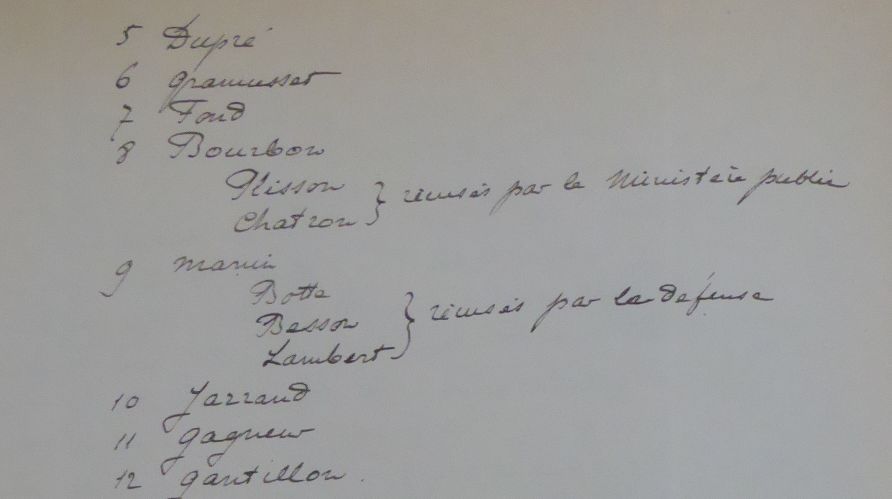 5 Dupré
6 Gramusset
7 Fond
8 Bourbon
Plisson
Chatron } récusés par le Ministère public
9 Marin
Botte
Besson } récusés par la défense
Lambert
10 Jarraud
11 Gagneur
12 Gantillon.